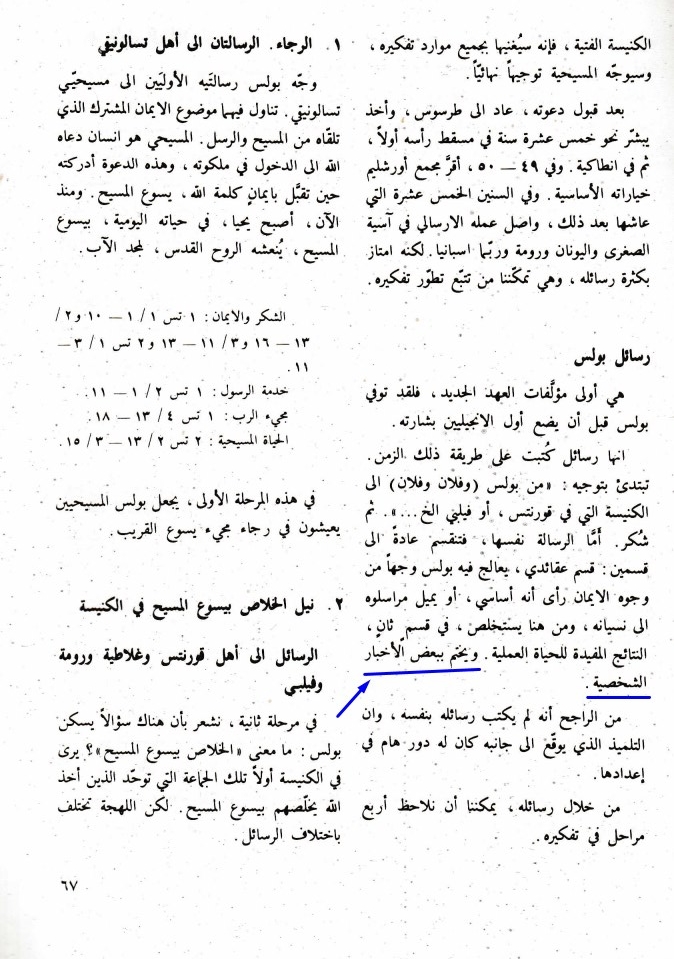 الكنيسة الفتية ، فإنه سيُغنيها بجميع موارد تفكيره ،
وسيوجّه المسيحية توجيهاً نهائيّاً.
بعد قبول دعوته ، عاد الى طرسوس ، وأخذ
يبشّر نحو خمس عشرة سنة في مسقط رأسه أولاً ،
ثم في انطاكية. وفي ٤٩ — ٥٠ ، أقرَّ مجمع أورشليم
خياراته الأساسية. وفي السنين الخمس عشرة التي
عاشها بعد ذلك ، واصل عمله الارسالي في آسية
الصغرى واليونان ورومة وربّما اسبانيا. لكنه امتاز
بكثرة رسائله ، وهي تمكّننا من تتبّع تطوّر تفكيره.
رسائل بولس
هي أولى مؤلَّفات العهد الجديد ، فلقد توفي
بولس قبل أن يضع أول الانجيليين بشارته.
انها رسائل كُتبت على طريقة ذلك الزمن.
تبتدئ بتوجيه : «من بولس (وفلان وفلان) الى
الكنيسة التي في قورنتس ، أو فيلبي الخ...». ثم
شُكر. أمَّا الرسالة نفسها ، فتنقسم عادةً الى
قسمين : قسم عقائدي ، يعالج فيه بولس وجهاً من
وجوه الايمان رأى أنه أساسي ، أو يميل مراسلوه
الى نسيانه ، ومن هنا يستخلص ، في قسم ثانٍ ،
النتائج المفيدة للحياة العملية. ويختم ببعض الأخبار
الشخصية.
من الراجح أنه لم يكتب رسائله بنفسه ، وان
التلميذ الذي يوقّع الى جانبه كان له دور هام في
إعدادها.
من خلال رسائله ، يمكننا أن نلاحظ أربع
مراحل في تفكيره.
١. الرجاء. الرسالتان الى أهل تسالونيقي
وجّه بولس رسالتَيه الأوليَين الى مسيحيّي
تسالونيقي. تناول فيهما موضوع الايمان المشترك الذي
تلقّاه من المسيح والرسل. المسيحي هو انسان دعاه
الله الى الدخول في ملكوته ، وهذه الدعوة أدركته
حين تقبَّل بايمانٍ كلمة الله ، يسوع المسيح. ومنذ
الآن ، أصبح يحيا ، في حياته اليومية ، بيسوع
المسيح ، يُنعشه الروح القدس ، لمجد الآب.
الشكر والايمان : ١ تس ١ / ١ — ١٠ و٢ /
١٣ — ١٦ و٣ / ١١ — ١٣ و٢ تس ١ / ٣ —
١١.
خدمة الرسول : ١ تس ٢ / ١ — ١١.
مجيء الرب : ١ تس ٤ / ١٣ — ١٨.
الحياة المسيحية : ٢ تس ٢ / ١٣ — ٣ / ١٥.
في هذه المرحلة الأولى ، يجعل بولس المسيحيين
يعيشون في رجاء مجيء يسوع القريب.
٢. نيل الخلاص بيسوع المسيح في الكنيسة
الرسائل الى أهل قورنتس وغلاطية ورومة
وفيلبي
في مرحلة ثانية ، نشعر بأن هناك سؤالاً يسكن
بولس : ما معنى «الخلاص بيسوع المسيح»؟ يرى
في الكنيسة أولاً تلك الجماعة التي توحّد الذين أخذ
الله يخلّصهم بيسوع المسيح. لكن اللهجة تختلف
باختلاف الرسائل.
٦٧